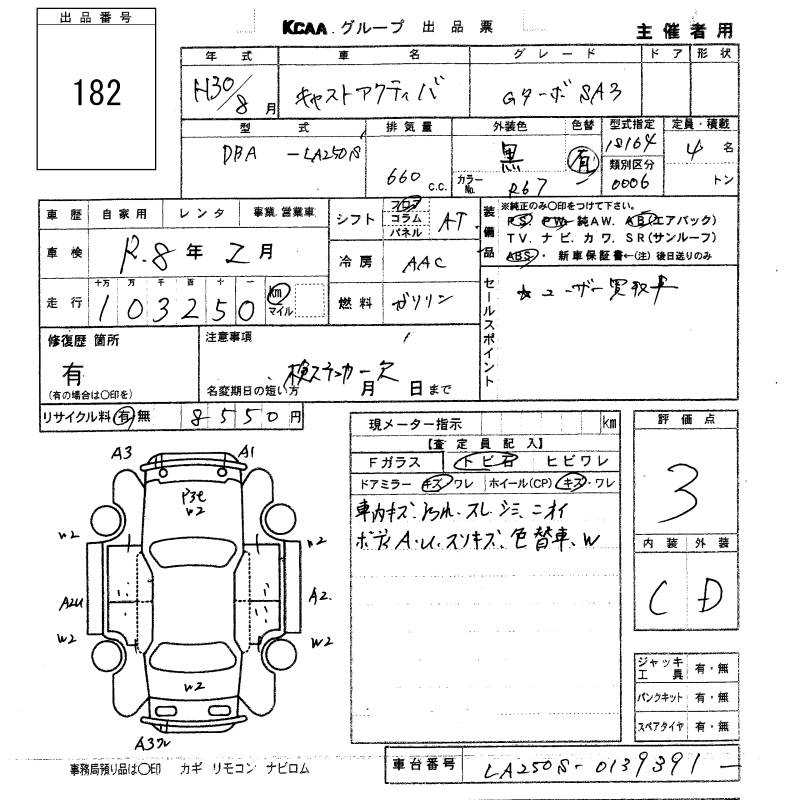 出品番号
182
KCAA グループ 出品票
主催者用
年式 車名 グレード ドア 形状
H30/8月 キャストアクティバ Gターボ SA3
型式 排気量 外装色 色替 型式指定 定員・積載
DBA -LA250S 660 c.c. 黒 有 18164 4名
カラーNo. R67 類別区分 0006 トン
車歴 自家用 レンタ 事業.営業車
シフト フロア コラム パネル AT
装備品 ※純正のみ○印をつけて下さい。
PS. PW. 純AW. AB(エアバック)
TV. ナビ. カワ. SR(サンルーフ)
ABS・ 新車保証書←(注) 後日送りのみ
車検 R.8年2月
冷房 AAC
走行 十万 万 千 百 十 一
103250 km マイル
燃料 ガソリン
セールスポイント
★ユーザー買取車
修復歴 箇所
有
(有の場合は○印を)
注意事項
検ステッカー欠
名変期日の短い方 月 日まで
リサイクル料 有 無 8550円
現メーター指示 km
【査定員記入】
Fガラス トビ石 ヒビワレ
ドアミラー キズ ワレ ホイール(CP) キズ・ワレ
車内キズ.汚れ.スレ.シミ.ニオイ
ボディA.U.スリキズ.色替車.W
評価点
3
内装 外装
C D
ジャッキ 工具 有・無
パンクキット 有・無
スペアタイヤ 有・無
A3 A1
W2
W2 W2
A2U A2.
W2 W2
W2
A3ワレ
事務局預り品は○印 カギ リモコン ナビロム
車台番号 LA250S-0139391